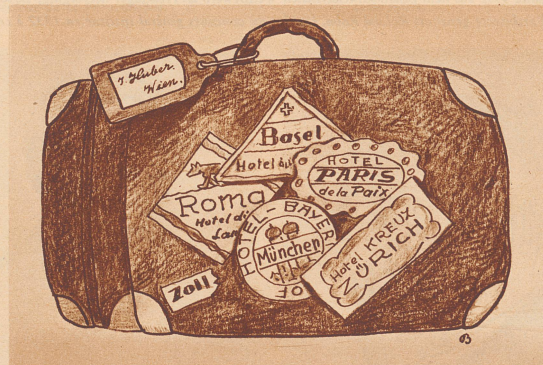 J. Huber.
Wien.
Basel
Hotel du
HOTEL
PARIS
de la Paix
Roma
Hotel di
Lan
HOTEL-BAYER
OF
München
Hotel KREUX
ZÜRICH
Zoll
B